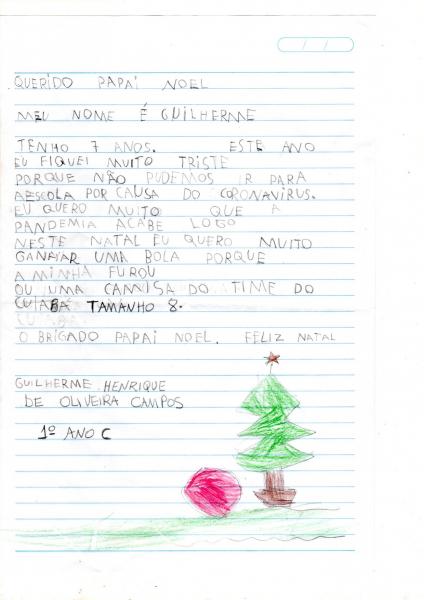 QUERIDO PAPAI NOEL
MEU NOME É GUILHERME
TENHO 7 ANOS. ESTE ANO
EU FIQUEI MUITO TRISTE
PORQUE NÃO PUDEMOS IR PARA
AESCOLA POR CAUSA DO CORONAVIRUS.
EU QUERO MUITO QUE A
PANDEMIA ACABE LOGO
NESTE NATAL EU QUERO MUITO
GANAHAR UMA BOLA PORQUE
A MINHA FUROU
OU UMA CAMISA DO TIME DO
CUIABÁ TAMANHO 8.
O BRIGADO PAPAI NOEL. FELIZ NATAL
GUILHERME HENRIQUE
DE OLIVEIRA CAMPOS
1º ANO C